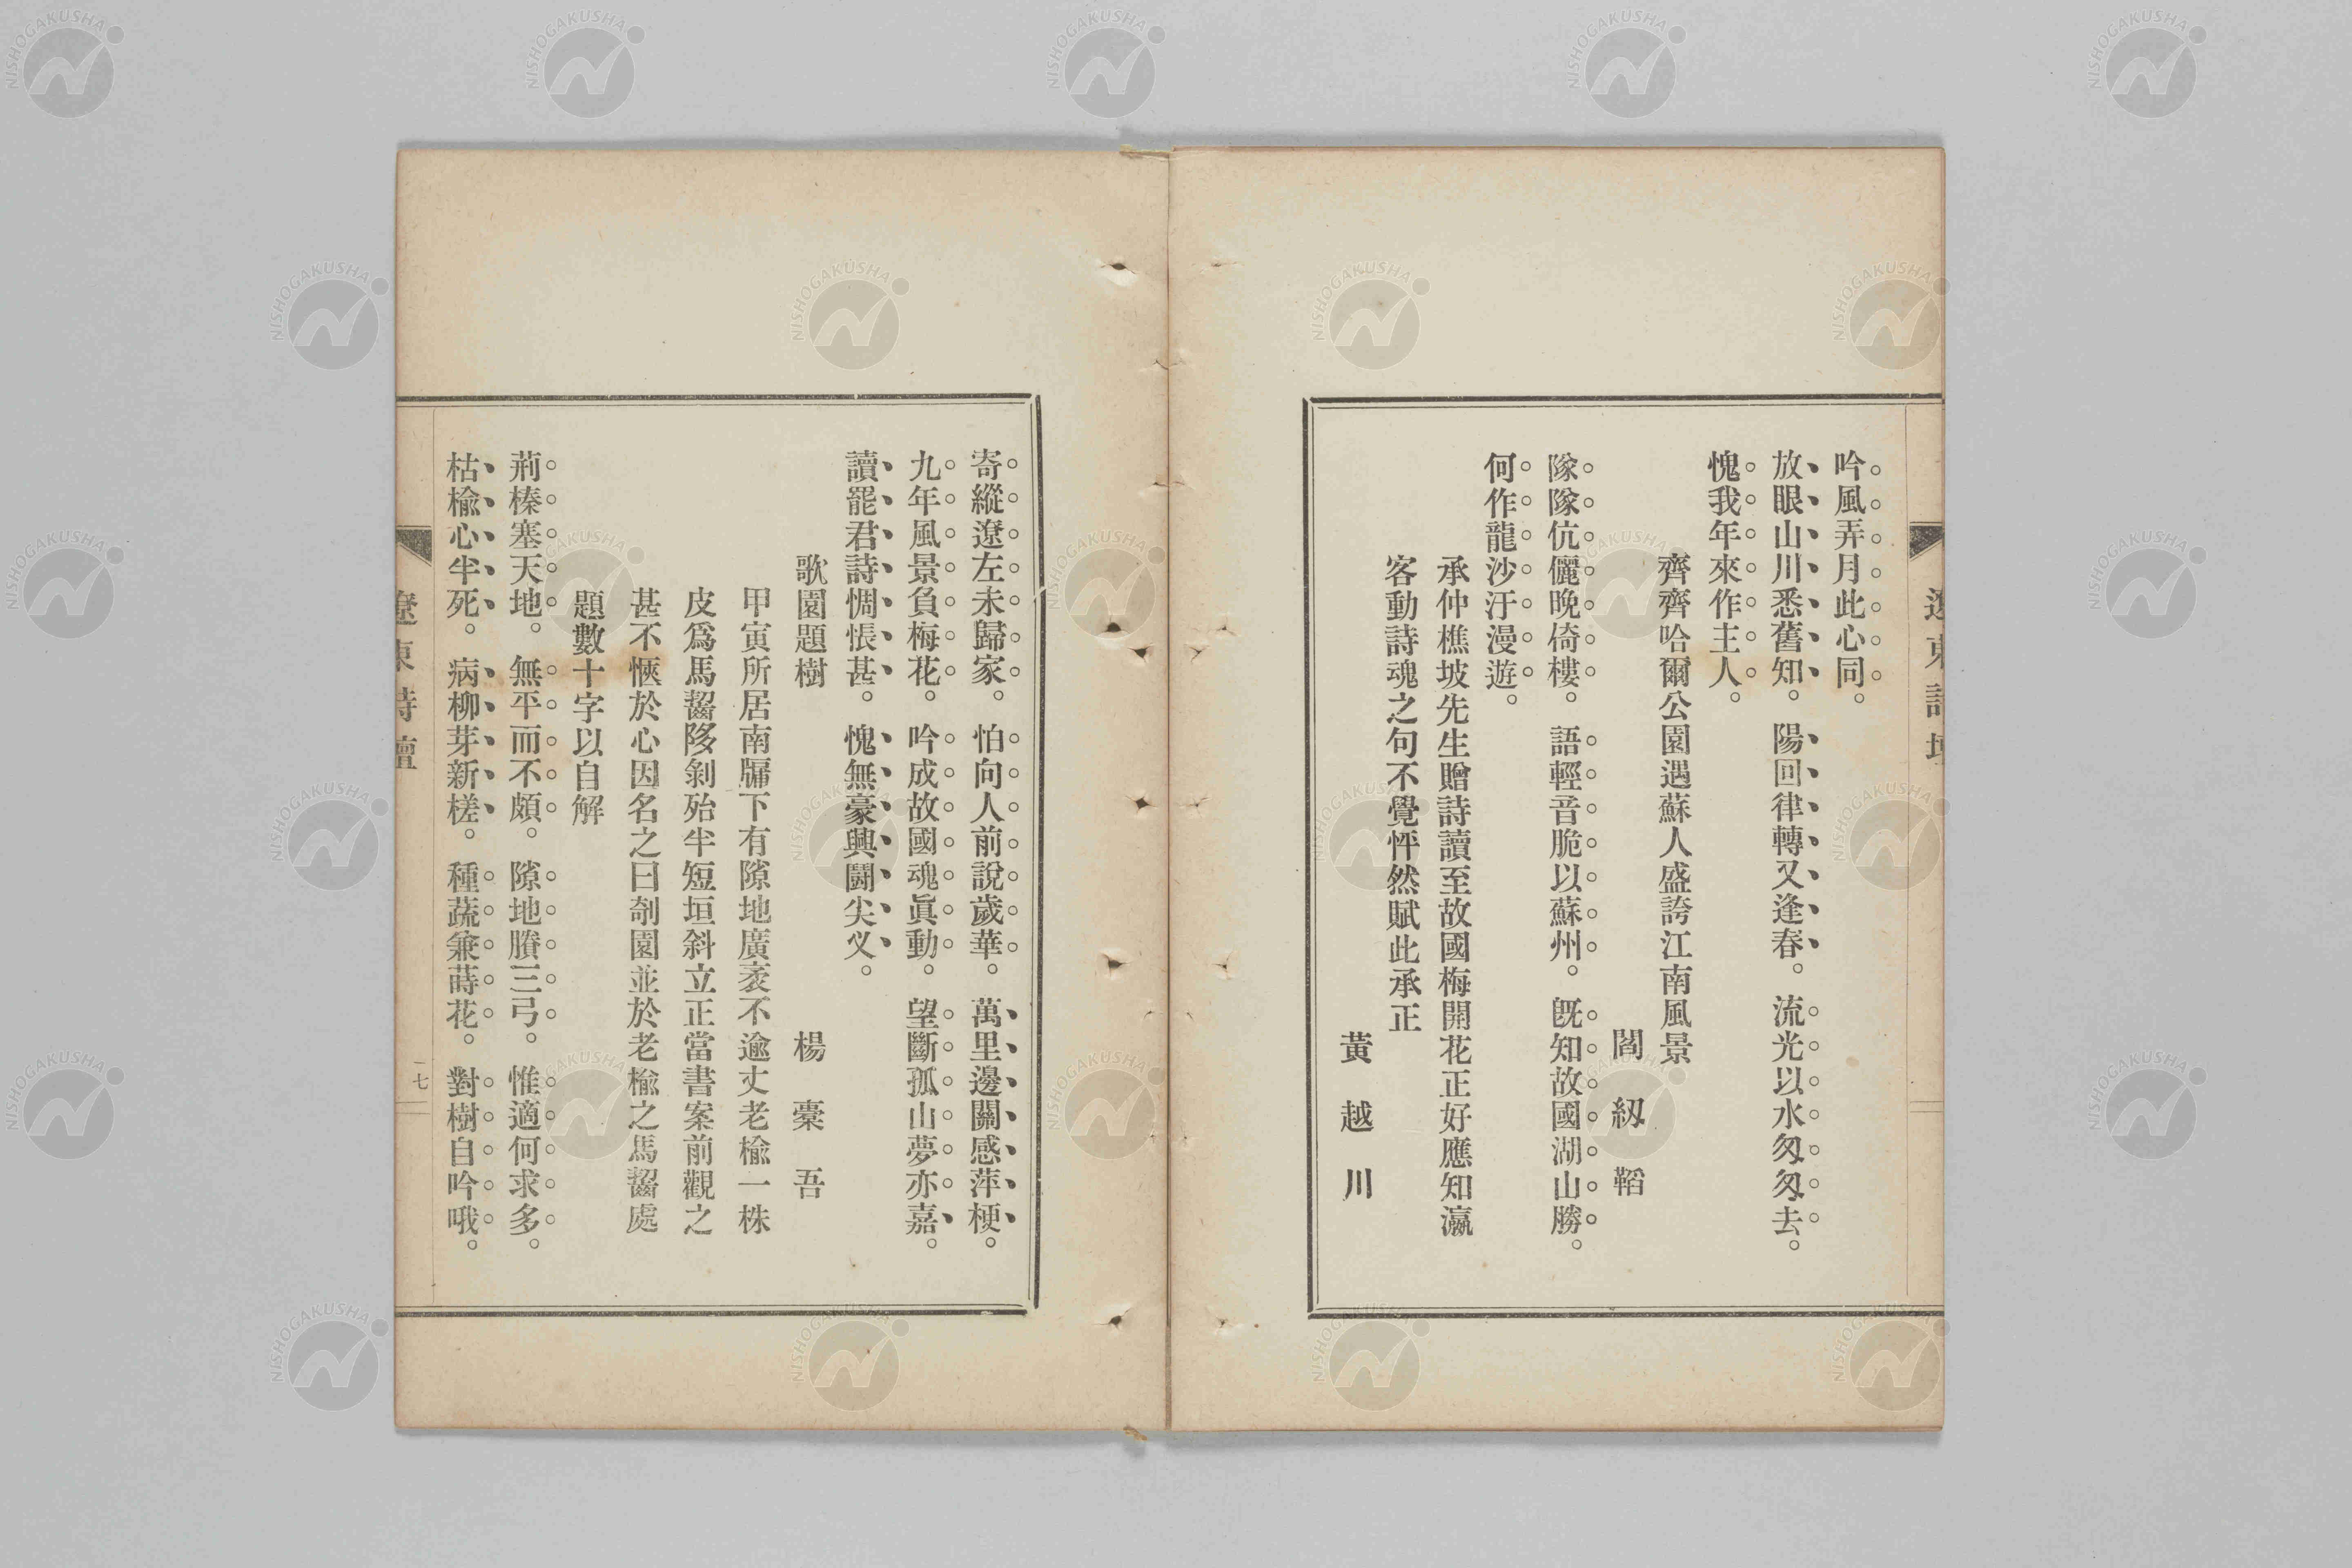 遼東詩壇
吟風弄月此心同。
放眼山川悉舊知。陽回律轉又逢春。流光以水匆匆去。
愧我年來作主人。
齊齊哈爾公園遇蘇人盛誇江南風景
閻紉韜
隊隊伉儷晚倚樓。語輕音脆以蘇州。既知故國湖山勝。
何作龍沙汙漫遊。
承仲樵坡先生贈詩讀至故國梅開花正好應知瀛
客動詩魂之句不覺怦然賦此承正
黃越川
寄縱遼左未歸家。怕向人前說歲華。萬里邊關感萍梗。
九年風景負梅花。吟成故國魂眞動。望斷孤山夢亦嘉。
讀罷君詩惆悵甚。愧無豪興鬪尖义。
歌園題樹
楊槖吾
甲寅所居南牖下有隙地廣袤不逾丈老楡一株
皮爲馬齧陊剝殆半短垣斜立正當書案前觀之
甚不愜於心因名之曰剞園並於老楡之馬齧處
題數十字以自解
荊榛塞天地。無平而不頗。隙地賸三弓。惟適何求多。
枯楡心半死。病柳芽新槎。種蔬兼蒔花。對樹自吟哦。
遼東詩壇
一七
NISHOGAKUSHA